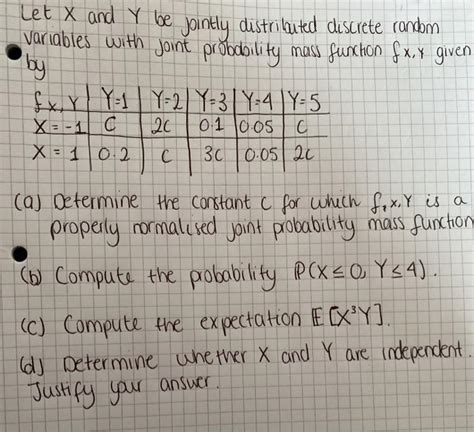 Let X and Y be jointly distributed discrete random
variables with joint probability mass function fx,Y given
by
fx,Y | Y=1 | Y=2 | Y=3 | Y=4 | Y=5
X=-1 | C | 2C | 0.1 | 0.05 | C
X=1 | 0.2 | C | 3C | 0.05 | 2C
(a) Determine the constant c for which f,x,Y is a
properly normalised joint probability mass function
(b) Compute the probability P(X≤0, Y≤4).
(c) Compute the expectation E[X³Y].
(d) Determine whether X and Y are independent.
Justify your answer.